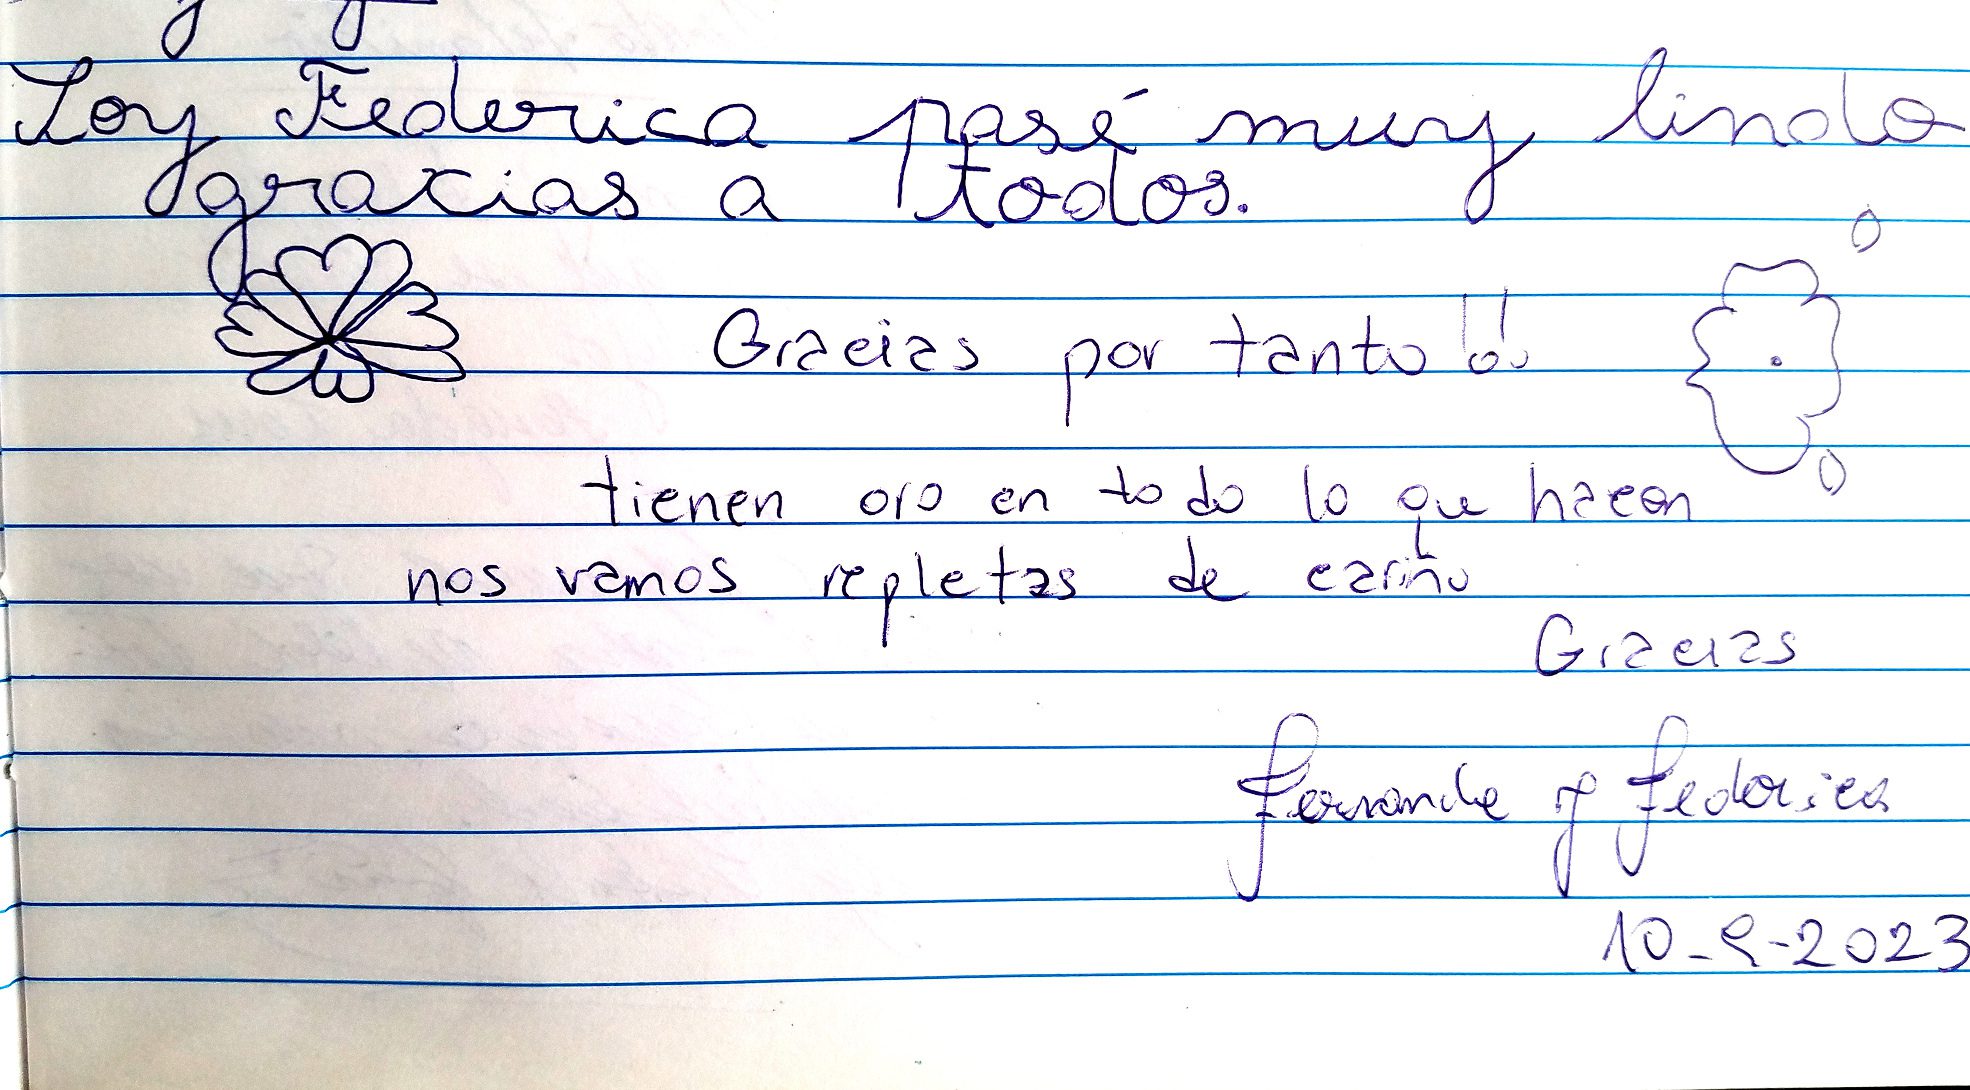 Soy Federica pasé muy lindo
gracias a todos.
Gracias por tanto!!
tienen oro en todo lo que hacen
nos vamos repletas de cariño
Gracias
Fernanda y Federica
10-9-2023